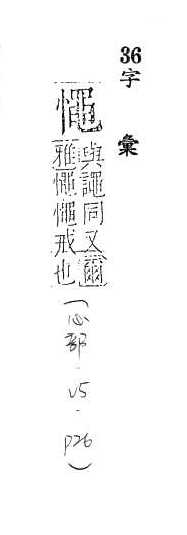 36字彙
憴
與譝同又爾
雅憴憴戒也
(心部-v5-p26)